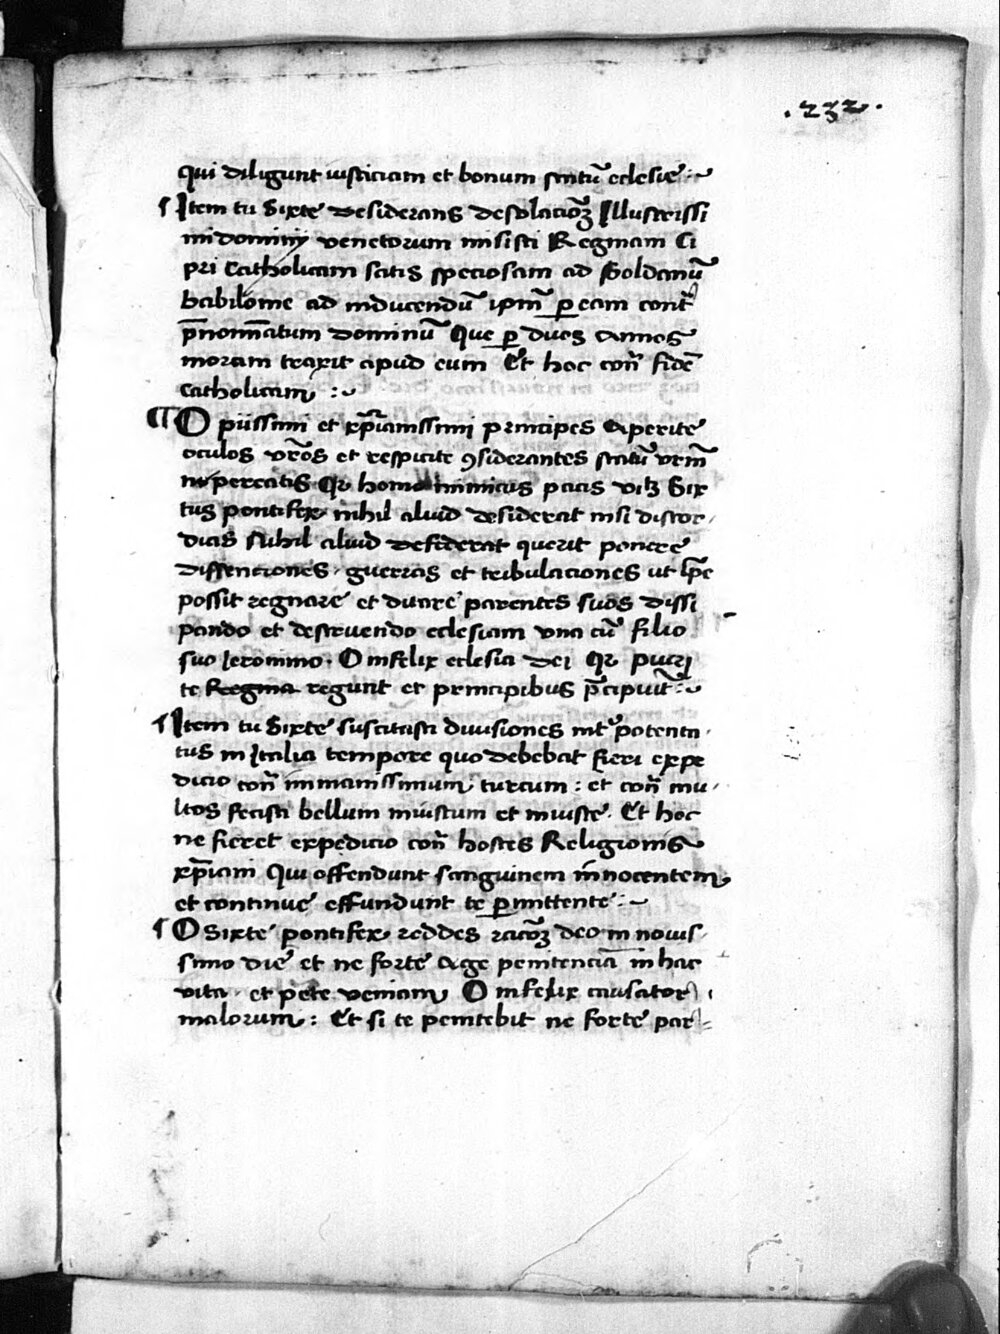 .232.
qui diligunt iusticiam et bonum statū eclesie :~
¶ Item tu Sixte desiderans desolacioꝫ Illustrissi
mi dominij venetorum misisti Reginam Ci
pri catholicam satis speciosam ad Soldanū
babilonie ad inducendū ip̄m ꝑ eam contᷓ
p̄nominatum dominū Que ꝑ duos annos
moram traxit apud eum Et hoc cont̄ fidē
catholicam :~
¶ O piissimi et xp̄ianissimi principes aperite
oculos vr̄os et respicite ꝯsiderantes statū vrm̄
ne pereatis Qꝛ homo inimicus pacis vitꝫ Six
tus pontifex nihil aliud desiderat nisi discor
dias Nihil aliud desiderat querit ponere
dissenciones guerras et tribulaciones ut ip̄e
possit regnare et ditare parentes suos dissi
pando et destruendo eclesiam vna cū filio
suo Ieronimo. O infelix eclesia dei Qꝛ pueri
te Regina regunt et principibus p̄cipiūt :~
¶ Item tu Sixte suscitasti diuisiones int̄ potenta
tus in Italia tempore quo debebat fieri expe
dicio cont̄ immanissimum turcum : et cont̄ mu
ltos fecisti bellum iniustum et iniuste. Et hoc
ne fieret expedicio cont̄ hostes Religionis
xp̄iani Qui offendunt sanguinem innocentem
et continue effundunt te ꝑmittente :~
¶ O Sixte pontifex reddes racioꝫ deo in nouis
simo die et ne forte age penitenciā in hac
vita et pete veniam O infelix causator
malorum : Et si te penitebit ne forte par